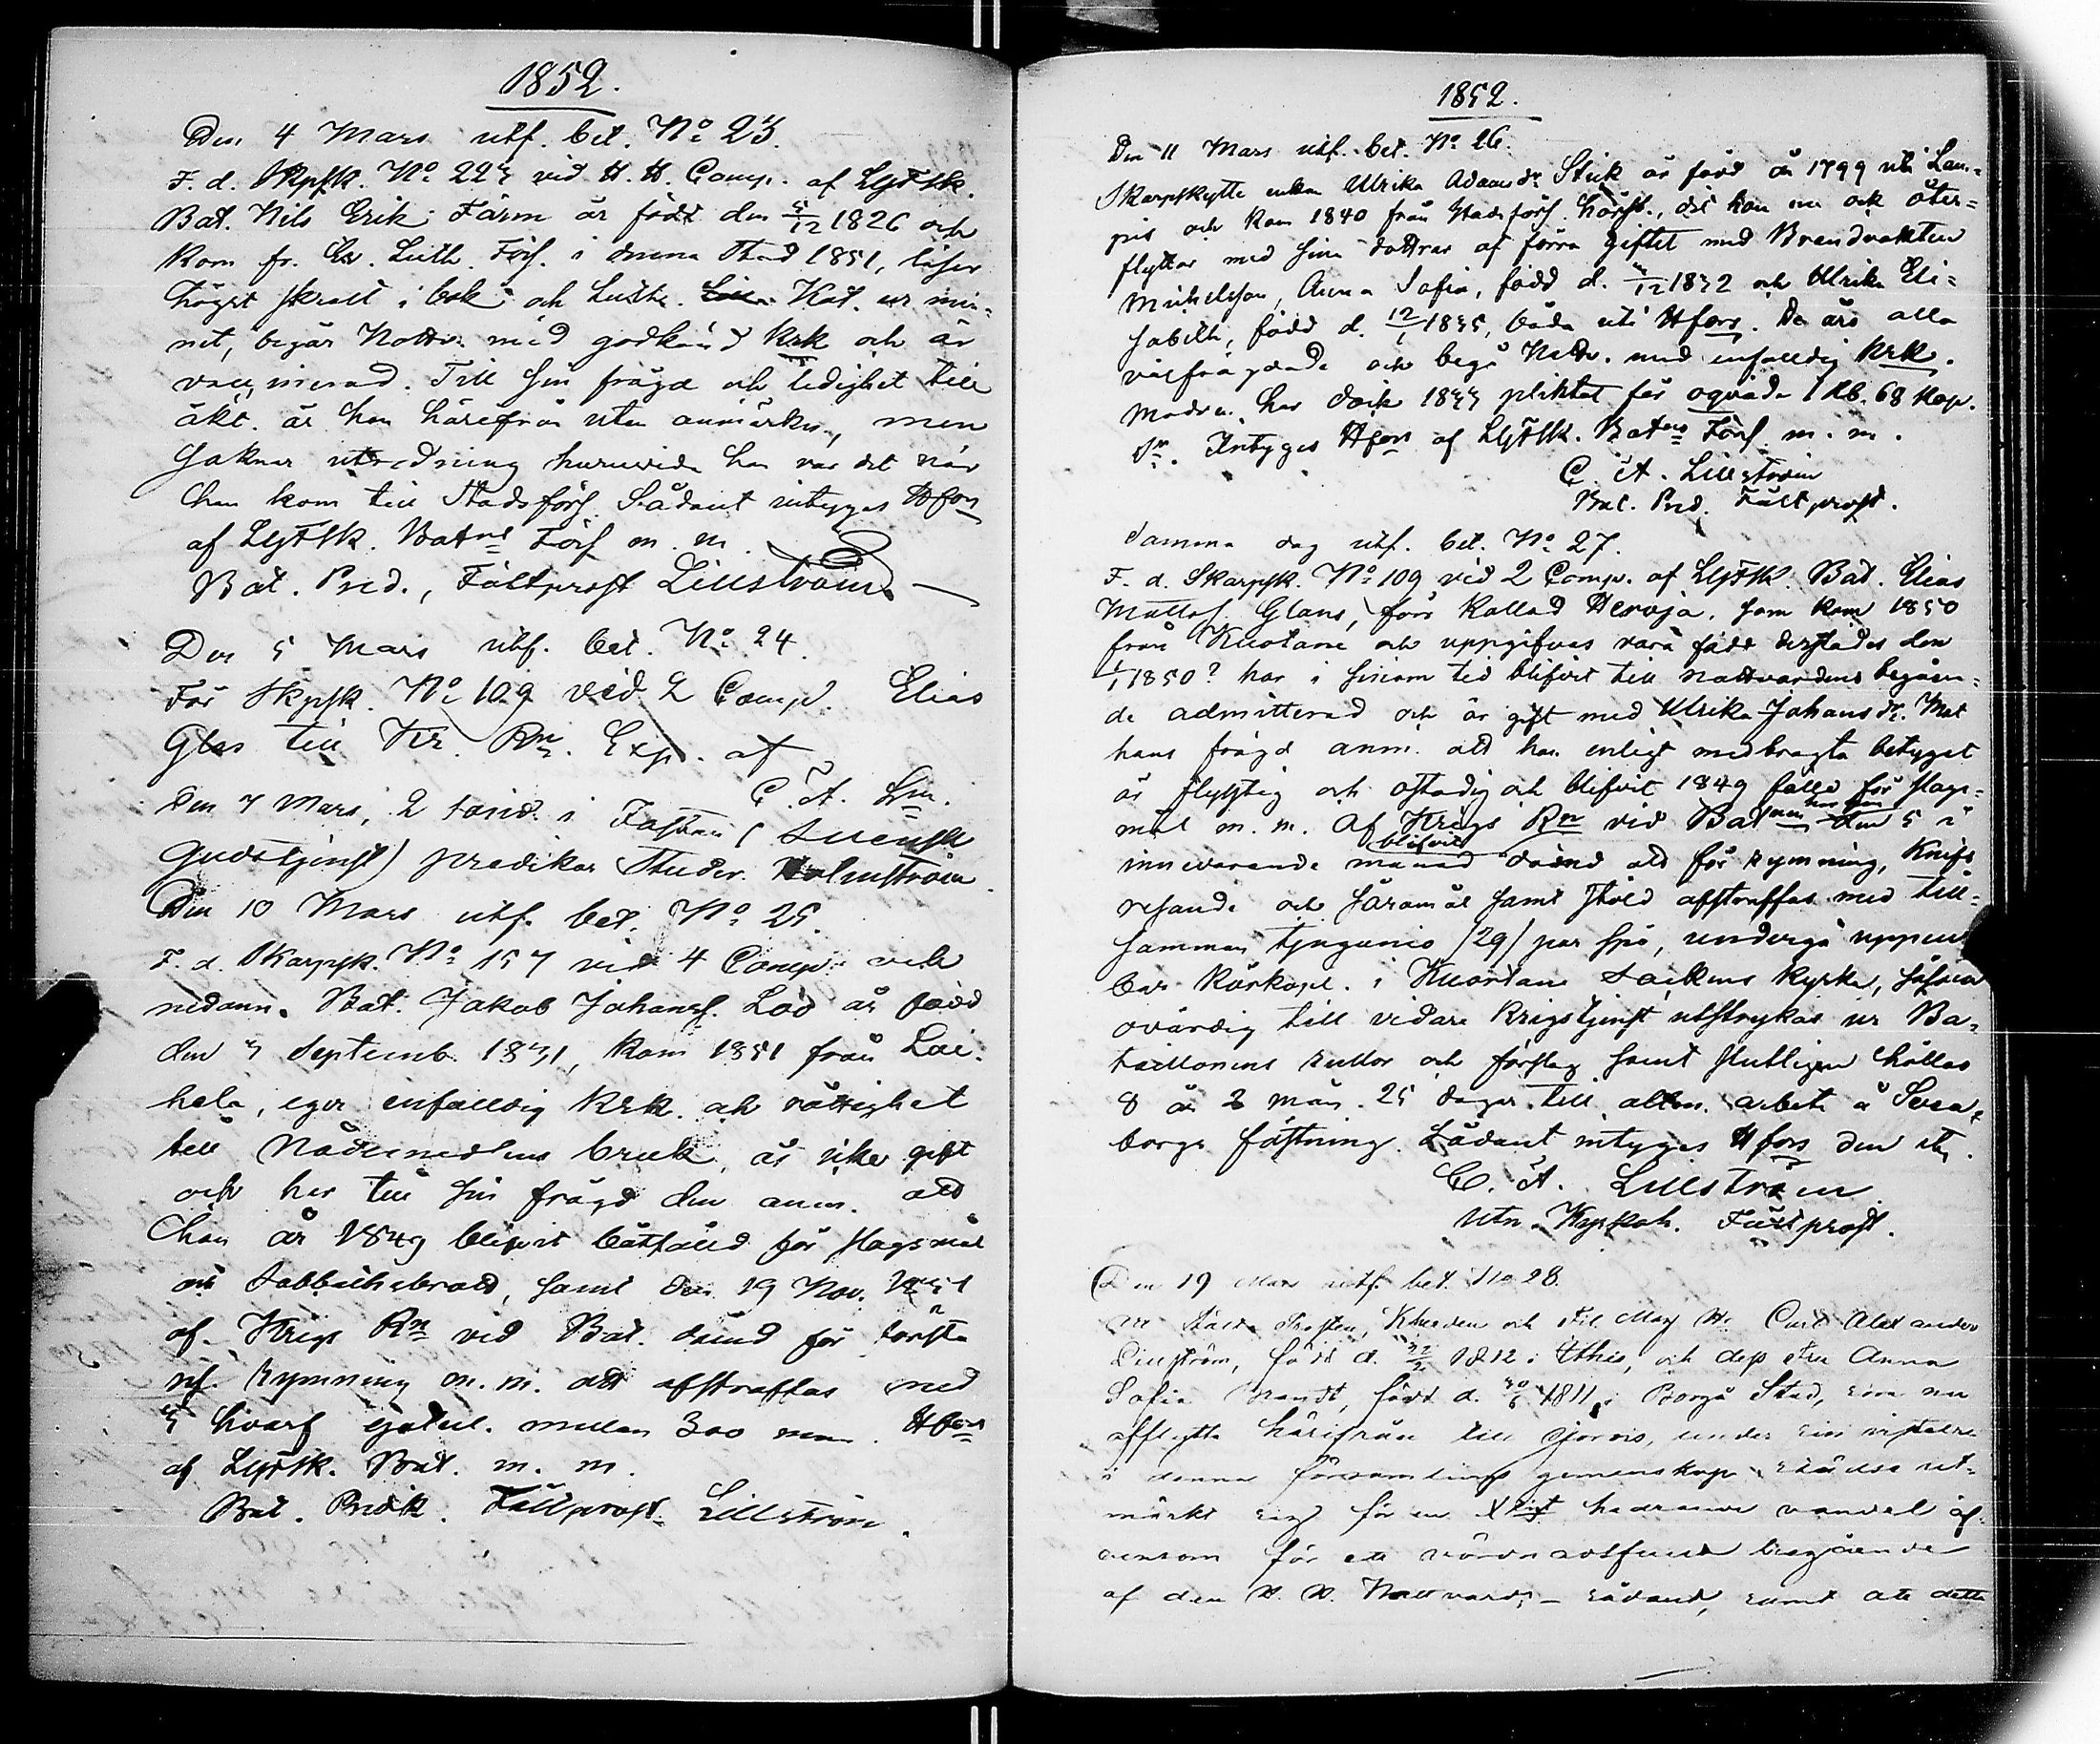 1852.
Den 4 Mars utf. bet. No 23.
F. d. Skpsk. No 225 vid H. H. Comp. af LgFSk.
Bat. Nils Erik Färm är född den 5/12 1826 och
kom fr. Ev. Luth. Förs. i denna Stad 1851, läser
högst skralt i bok och Luthe. Kat. ur min-
net, begår Nattv. med godkänd Krk och är
vaccinerad. Till sin frägd och ledighet till
äkt. är han härifrån utan anmärkn., men
saknar utredning huruvida han var det när
han kom till Stadsförs. Sådant intygas Hfors
af LgFSk. Batns Förs m. m.
Bat. Pred., Fältprost Lillström
Den 5 Mars utf. bet. No 24.
För Skpsk. No 109 vid 2 Comp. Elias
Glas till Kr. Rn. Exp. af
C. A. Lm.
Den 7 Mars, 2 sönd. i Fastan (Svensk
Gudstjenst) predikar Studer. Holmström
Den 10 Mars utf. bet. No 25.
F. d. Skarpsk. No 157 vid 4 Comp. och
nedann. Bat. Jakob Johanss. Lod är född
den 5 Septemb. 1831, kom 1851 från Lai-
hela, eger enfalldig Krk. och rättighet
till Nådemedlens bruk, är icke gift
och har till sin frägd den anm. att
han år 1849 blifvit bötfälld för slagsmål
och Sabbathsbrott, samt den 19 Nov. 1851
af Krigs Rn vid Bat. dömd för första
rymning m. m. att afstraffas med
5 hvarf gatul. mellan 300 man. Hfors
af LgFSk. Bat. m. m.
Bat. Predik. Fältprost Lillström.
1852.
Den 11 Mars utf. bet. No 26.
Skarpskytte enkan Ulrika Adamsdr Stick är född år 1799 uti Lam-
pis och kom 1840 från Stadsförs. härst., dit hon nu ock åter-
flyttar med sina döttrar af förra giftet med Brandvakten
Michelsson, Anna Sofia, född d. /12 1832 och Ulrika Eli-
sabeth, född d. 12/1 1835, båda uti Hfors. De äro alla
välfrägdade och begå Nattv. med enfalldig Krk.
Modren har dock 1835 pliktat för oqväde 1 Rb. 68 kop.
Sr. Intygas Hfors af LgFSk. Batns Förs. m. m.
C. A. Lillström
Bat. Pred. Fältprost.
Samma dag utf. bet. No 27.
F. d. Skarpsk. No 109 vid 2 Comp. af LgFSk. Bat. Elias
Mattss. Glans, förr kallad Hervja, som kom 1850
från Kuortane och uppgifves vara född derstädes den
1/1 1850? har i sinom tid blifvit till nattvardens begåen-
de admitterad och är gift med Ulrika Johansdr. Mot
hans frägd anm. att han enligt medbragta betyget
är flygtig och ostadig och blifvit 1849 fälld för slags-
mål m. m. Af Krigs Rn vid Batnen har han den 5 i
innevarande månad blifvit dömd att för rymning, knifs
resande och såramål samt stöld afstraffas med till-
samman tjugunio /29/ par spö, undergå uppen-
bar kyrkopl. i Kuortane Sockens kyrka, såsom
ovärdig till vidare krigstjenst utstrykas ur Ba-
taillonens rullor och förslag samt slutligen hållas
8 år 2 mån. 25 dagar till allm. arbete å Svea-
borgs fästning. Sådant intygas Hfors den
C. A. Lillström
Fältprost.
Den 19 Mars utf. bet. No 28.
Carl Alexander
Lillström, född d. 1812 i Ithis, och dess Fru Anna
Sofia Brandt, född d. 30/6 1811 i Borgå Stad, som nu
afflytta härifrån till Jorois, under sin vistelse
i denna församlings gemenskap städse ut-
märkt sig för en Xligt hedrande vandel äf-
vensom för ett vördnadsfullt begående
af den H. H. Nattvard; — sådant, samt att detta